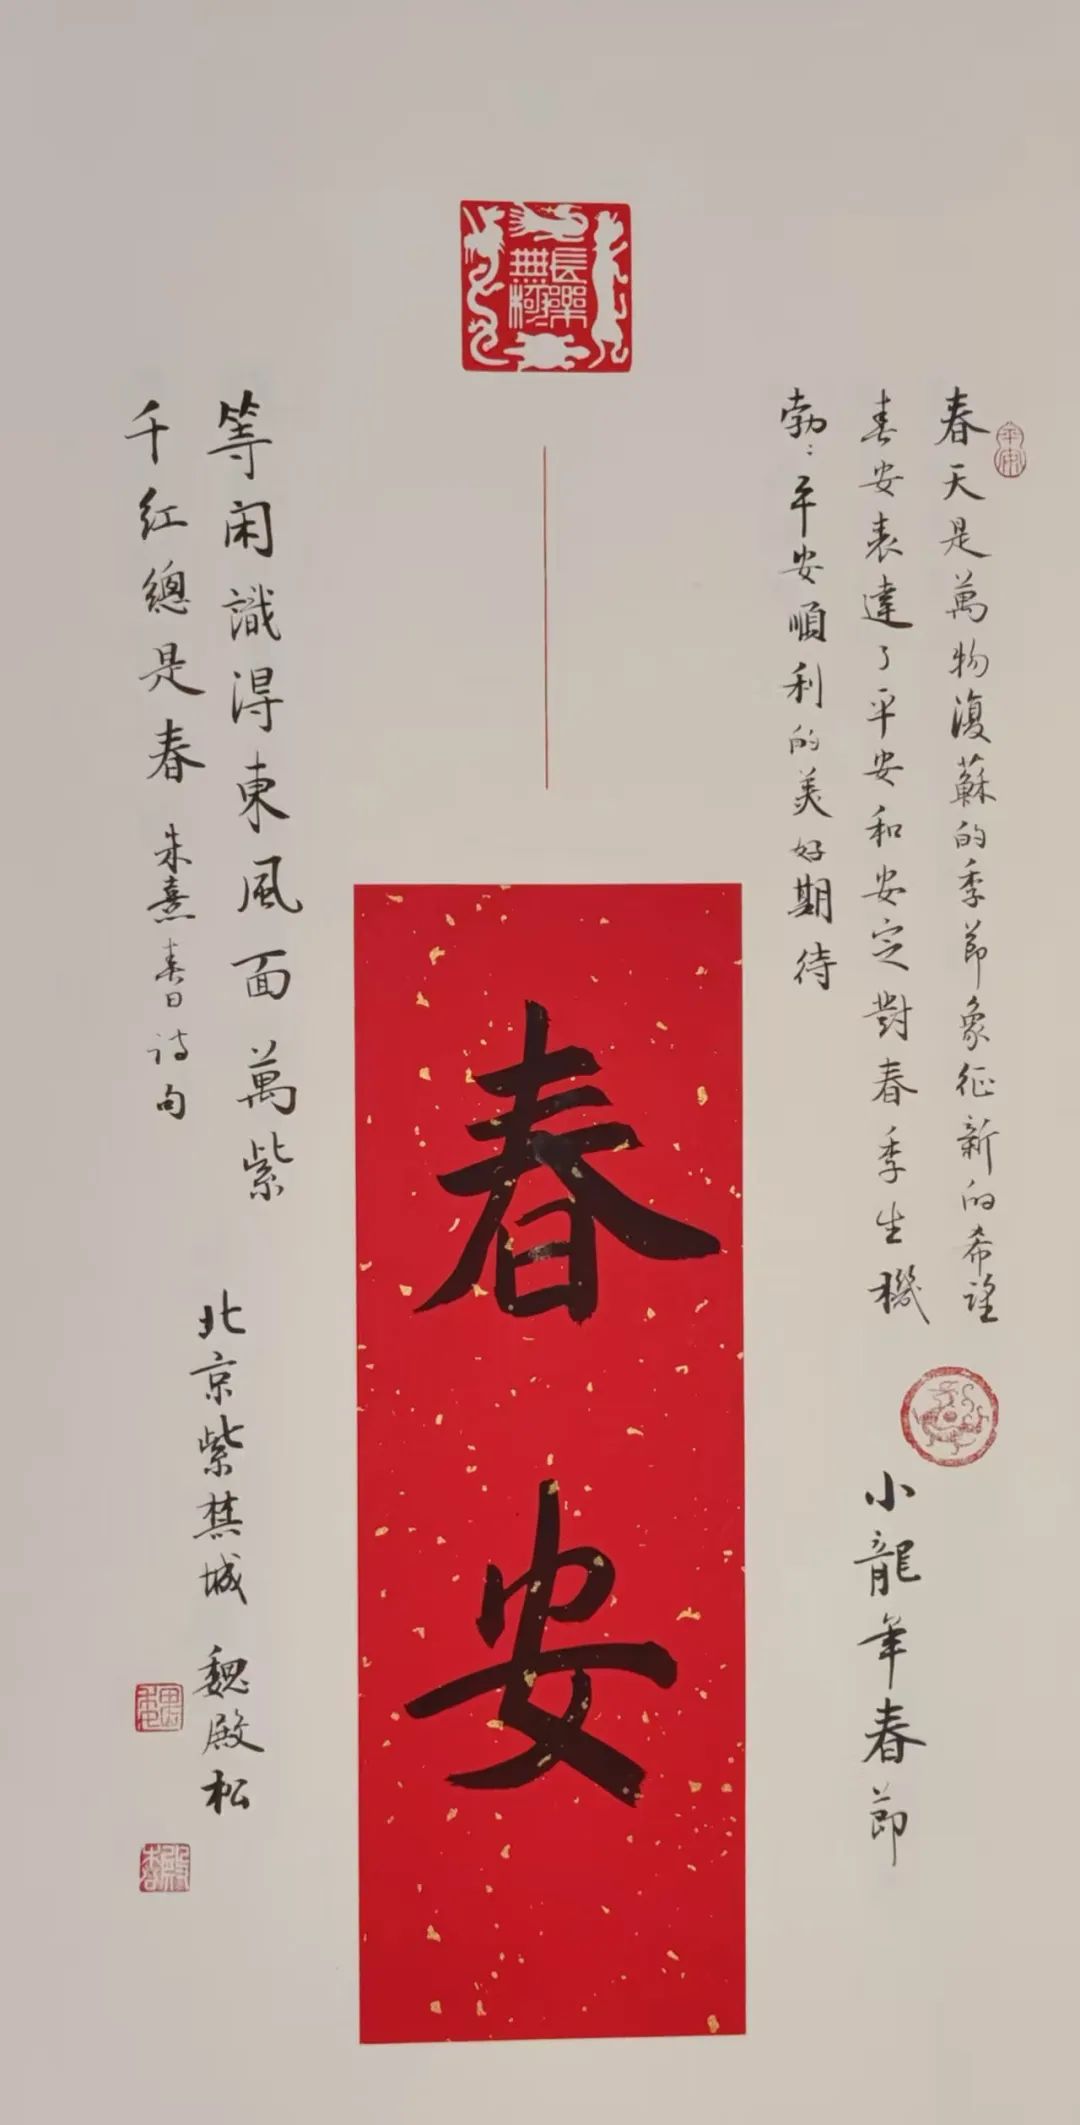 長樂無極
平安
春天是萬物復蘇的季節象征新的希望
春安表達了平安和安定對春季生機
勃〻平安順利的美好期待
小龍年春節
春安
等闲識得東風面萬紫
千红總是春 朱熹春日诗句
北京紫禁城 魏殿松
魏
殿松